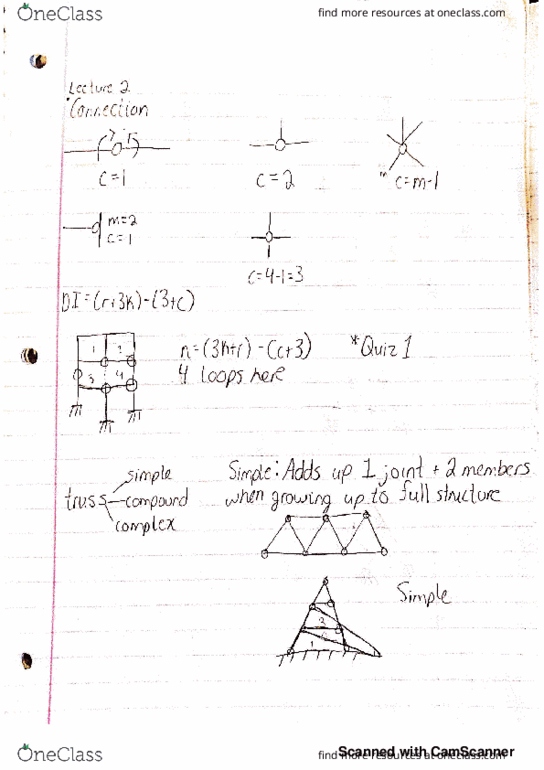 OneClass
find more resources at oneclass.com
Lecture 2
Connection
C=1
C=2
C=m-1
m=2
C=1
C=4-1=3
DI=(r+3k)-(3+c)
1 2
3 4
n=(3k+r)-(c+3) *Quiz 1
4 loops here
truss
simple
compound
complex
Simple: Adds up 1 joint + 2 members
when growing up to full structure
Simple
3
1
OneClass
find more resources at oneclass.com
Scanned with CamScanner